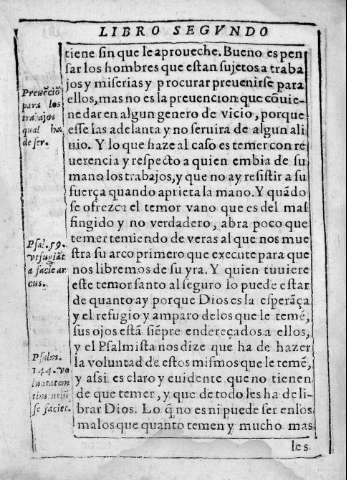 LIBRO SEGVNDO
tiene sin que le aproueche. Bueno es pen
sar los hombres que estan sujetos a traba
jos y miserias y procurar preuenirse para
ellos, mas no es la preuencion que cõuie-
ne dar en algun genero de vicio, porque
esse las adelanta y no seruira de algun ali
uio. Y lo que haze al caso es temer con re
uerencia y respecto a quien embia de su
mano los trabajos, y que no ay resistir a su
fuerça quando aprieta la mano. Y quãdo
se ofreze el temor vano que es del mas
fingido y no verdadero, abra poco que
temer temiendo de veras al que nos mue
stra su arco primero que execute para que
nos libremos de su yra. Y quien tuuiere
este temor santo al seguro lo puede estar
de quanto ay porque Dios es la esperãça
y el refugio y amparo de los que le temẽ,
sus ojos està siẽpre endereçados a ellos,
y el Psalmista nos dize que ha de hazer
la voluntad de estos mismos que le temẽ,
y assi es claro y euidente que no tienen
de que temer, y que de todo les ha de li-
brar Dios. Lo q̃ no es ni puede ser en los
malos que quanto temen y mucho mas
les
Preuẽciõ
para los
trabajos
qual ha
de ser.
Psal. 59.
vt fugiãt
a facie ar
cus.
Psalm.
144. vo
luntatem
faciet.